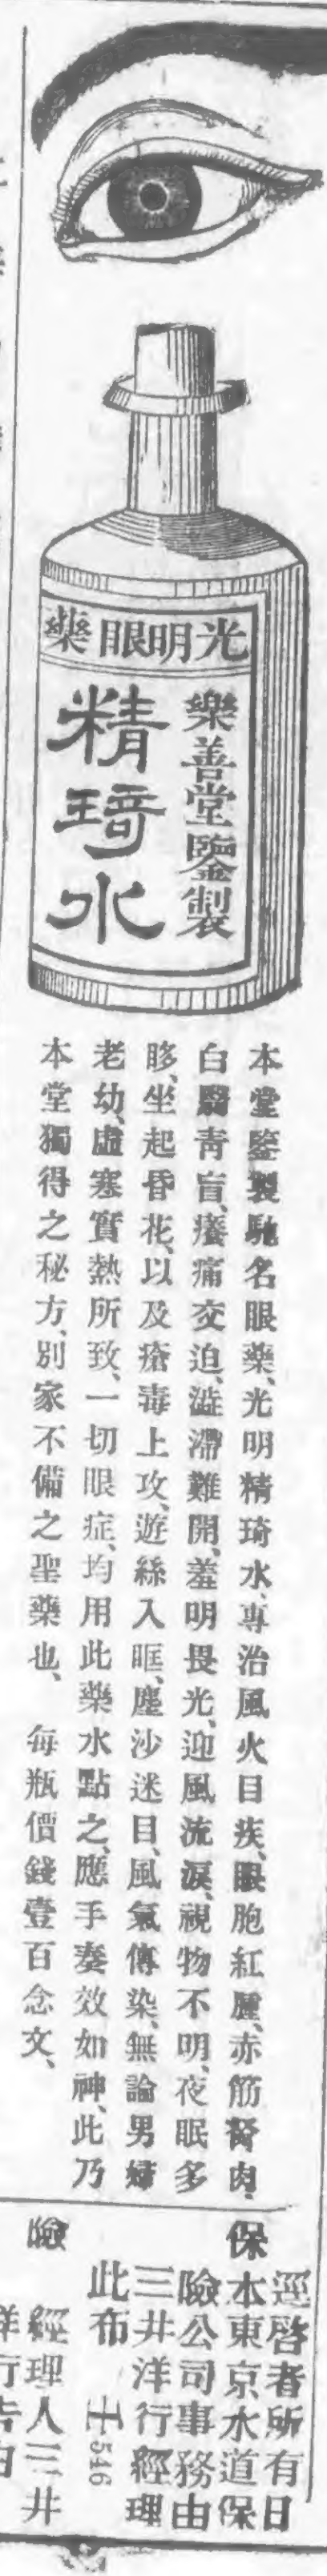 光明眼藥
樂善堂鑒製
精琦水
本堂鑒製馳名眼藥、光明精琦水、專治風火目疾、眼胞紅腫、赤筋胬肉、
白翳青盲、癢痛交迫、澁滯難開、羞明畏光、迎風流淚、視物不明、夜眠多
眵、坐起昏花、以及瘡毒上攻、遊絲入眶、塵沙迷目、風氣傳染、無論男婦
老幼、虛寒實熱所致、一切眼症、均用此藥水點之、應手奏效如神、此乃
本堂獨得之秘方、別家不備之聖藥也、 每瓶價錢壹百念文、
保險
逕啓者所有日
本東京水道保
險公司事務由
三井洋行經理
此布 546
經理人三井
洋行告白